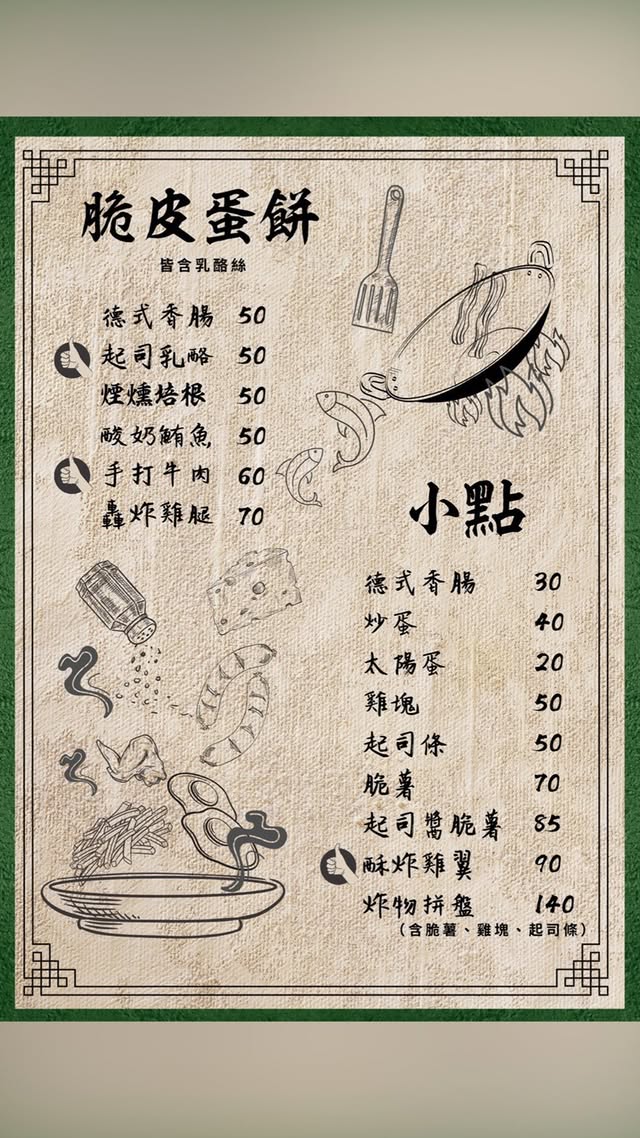 脆皮蛋餅
皆含乳酪絲
德式香腸 50
起司乳酪 50
煙燻培根 50
酸奶鮪魚 50
手打牛肉 60
轟炸雞腿 70
小點
德式香腸 30
炒蛋 40
太陽蛋 20
雞塊 50
起司條 50
脆薯 70
起司醬脆薯 85
酥炸雞翼 90
炸物拼盤 140
（含脆薯、雞塊、起司條）